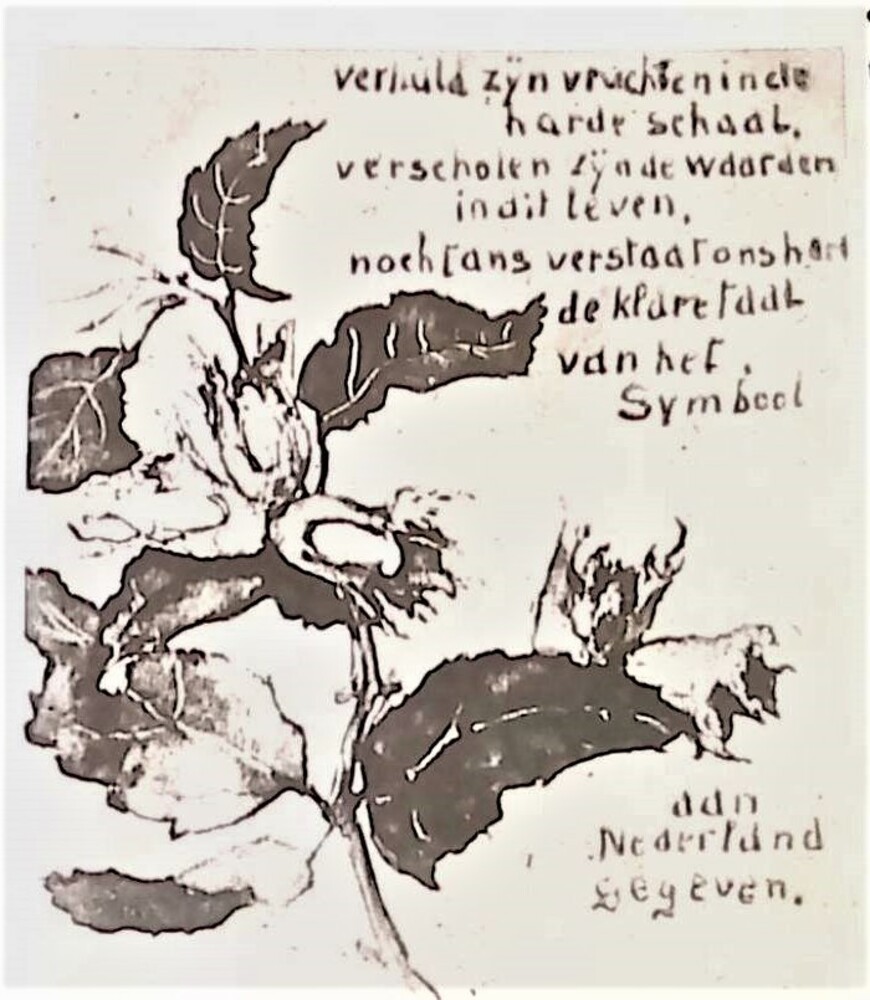 verhuld zijn vruchten in de
harde schaal.
verscholen zijn de waarden
in dit leven,
nochtans verstaat ons hart
de klare taal
van het.
Symbool
aan
Nederland
gegeven.